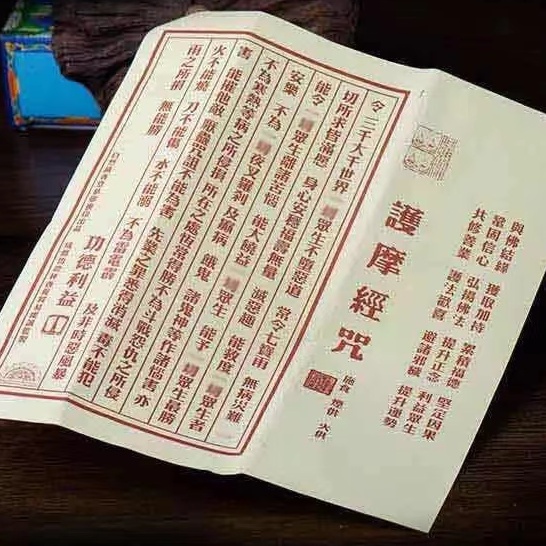 與佛結緣 獲取加持 累積福德 堅定因果
常固信心 弘揚佛法 提升正念 利益眾生
共修善業 護法歡喜 避諸邪礙 提升運勢
護摩經咒
煙供 火供
令三千大千世界 眾生不墮惡道 常令七寶雨
切所求皆滿足 身心安穩福壽無量 滅惡趣 無病災難
能令 眾生離諸苦惱 能大饒益 眾生 能救度 眾生者
安樂 不為 夜叉羅刹 及癲病 餓鬼 能予 眾生最勝
不為寒熱等病之所侵損 所在之處恆常得勝 諸鬼神等作諸惱害 亦
害 能摧他敵 厭蠱咒詛不能為害 不為鬥戰怨仇之所侵
火不能燒 刀不能傷 水不能溺 先業之罪悉得消滅 毒不能犯
雨之所損 無能勝 不為雷電霹 及非時惡風暴
功德利益